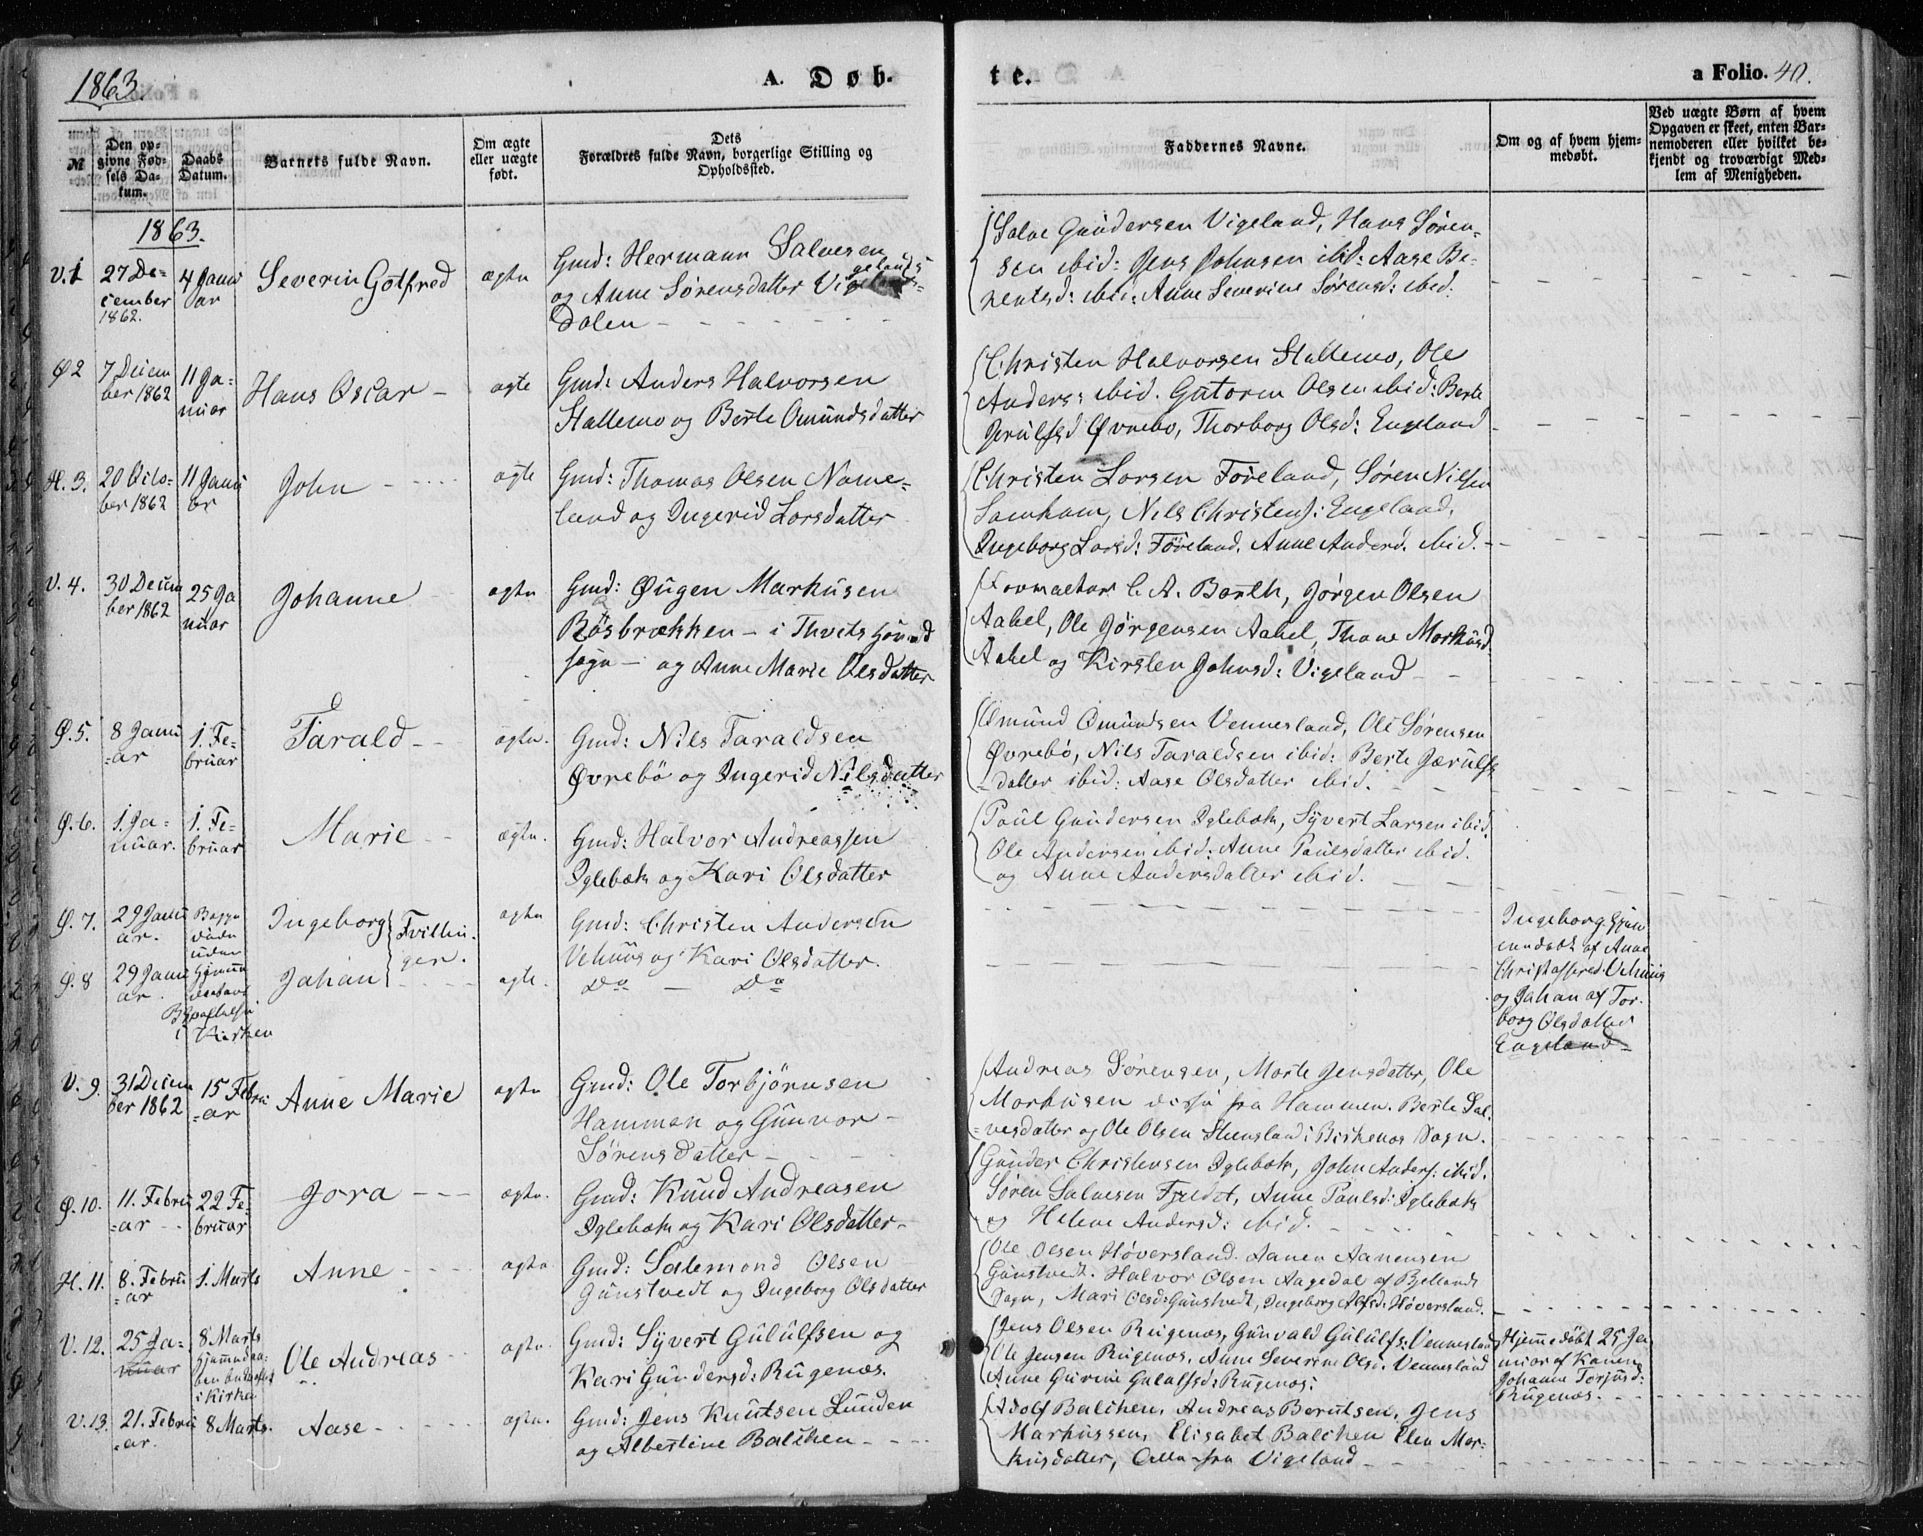 1863.
A. Døb-
te.
a Folio. 40.
№
Den op-
givne Fød-
sels Da-
tum.
Daabs
Datum.
Barnets fulde Navn.
Om ægte
eller uægte
født.
Dets
Forældres fulde Navn, borgerlige Stilling og
Opholdssted.
Faddernes Navne.
Om og af hvem hjem-
medøbt.
Ved uægte Børn af hvem
Opgaven er skeet, enten Bar-
nemoderen eller hvilket be-
kjendt og troværdigt Med-
lem af Menigheden.
1863.
V. 1
27 De-
cember
1862.
4 Janu
ar
Severin Gotfred
ægte
Gmd: Hermann Salvesen
og Anne Sørensdatter Vigelands-
dalen
Salve Gundersen Vigeland, Hans Søren-
sen ibid: Jens Johnsen ibid: Aase Be-
rentsd: ibid: Anne Severine Sørensd: ibid.
Ø 2
7 Decem
ber 1862
11 Ja-
nuar
Hans Oscar
ægte
Gmd: Anders Halvorsen
Stallemo og Berte Omundsdatter
Christen Halvorsen Stallemo, Ole
Anders: ibid. Gutorm Olsen ibid: Berte
Jerulfsd Øvrebo, Thorborg Olsd: Engeland
H. 3.
20 Octo-
ber 1862
11 Janu
ar
John
ægte
Gmd: Thomas Olsen Nome-
land og Ingerid Larsdatter
Christen Larsen Føreland, Søren Nilsen
Samkom, Nils Christens: Engeland,
Ingeborg Larsd: Føreland, Anne Andersd. ibid.
V. 4.
30 Decem
ber 1862
25 Ja
nuar
Johanne
ægte
Gmd: Øugen Markusen
Røsbrækken - i Thveits Hoved
sogn - og Anne Marie Olsdatter
Formector C. A. Barth, Jørgen Olsen
Aabel, Ole Jørgensen Aabel, Thone Markusd
Aabel og Kirsten Johnsd: Vigeland
Ø. 5.
8 Janu
ar
1. Fe-
bruar
Tarald
ægte.
Gmd: Nils Taraldsen
Øvrebö og Ingerid Nilsdatter
Omund Omundsen Vennesland, Ole Sørensen
Øvrebö, Nils Taraldsen ibid: Berte Jærulfs
datter ibid: Aase Olsdatter ibid.
Ø. 6.
1. Ja-
nuar.
1. Fe-
bruar
Marie
ægte.
Gmd: Halvor Andreassen
Iglebæk og Kari Olsdatter
Paul Gundersen Iglebæk, Syvert Larsen ibid.
Ole Andersen ibid: Anne Paulsdatter ibid.
og Anne Andersdatter ibid.
Ø. 7.
29 Janu
ar.
Begge
døde
uden
Ingeborg
Tvillin-
ger.
ægte
Gmd: Christen Andersen
Vehuus og Kari Olsdatter.
Ingeborg hjem
medøbt af Anne
Christoffersd: Vehuus
og Johan af Tor-
borg Olsdatter
Engeland
Ø. 8
29 Janu
ar.
i Kirken
Johan
ægte.
Do - Do
V. 9.
31 Decem
ber 1862
15 Febru
ar
Anne Marie
ægte
Gmd: Ole Torbjörnsen
Hammen og Gunvor
Sørensdatter
Andreas Sørensen, Marte Jensdatter, Ole
Markusen disse fra Hammen. Berte Sal-
vesdatter og Ole Olsen Steensland i Birkenes Sogn.
Ø. 10.
11. Febru
ar
22 Fe-
bruar
Jora
ægte.
Gmd: Knud Andreasen
Iglebæk og Kari Olsdatter
Gunder Christensen Iglebæk, John Anders. ibid.
Søren Salvesen Fjeldet, Anne Paulsd: Iglebæk
og Helene Andersd: ibid.
H. 11.
8. Febru
ar
1. Marts
Anne
ægte
Gmd: Salemond Olsen
Gunstvedt og Ingeborg Olsdatter
Ole Olsen Höversland. Aanen Aanensen
Gunstvedt. Halvor Olsen Aagedal af Bjellands
Sogn, Mari Olsd: Gunstvedt, Ingeborg Alfsd: Höversland.
V. 12.
25 Ja-
nuar
8 Marts
hjemmedaa-
ben
i Kirken
Ole Andreas
ægte.
Gmd: Syvert Gululfsen og
Kari Gundersd: Rugenæs.
Jens Olsen Rugenæs, Gunvald Gululfs: Vennesland
Ole Jensen Rugenæs, Anne Severine Olsd. Vennesland
Anne Gurine Gululfsd: Rugenæs.
Hjemmedøbt 25 Ja
nuar af Konen
Johanne Torjusd:
Rugenæs.
V. 13.
21. Febru
ar.
8 Marts.
Aase
ægte.
Gmd: Jens Knutsen Lunden
og Albertine Balchen
Adolf Balchen, Andreas Berntsen, Jens
Markussen, Elisabet Balchen Elen Mar-
kusdatter, Alle fra Vigeland